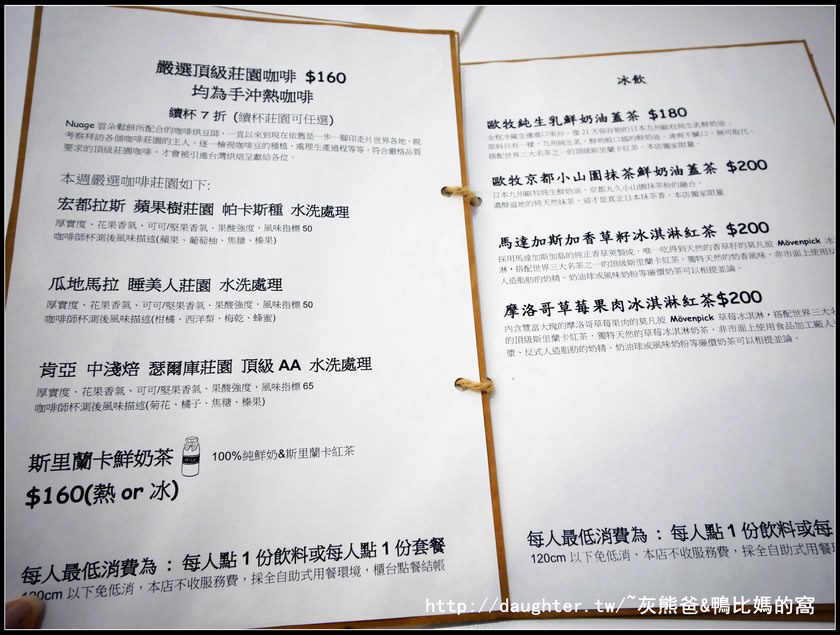 嚴選頂級莊園咖啡 $160
均為手沖熱咖啡
續杯 7 折 (續杯莊園可任選)
Nuage 雲朵鬆餅所配合的咖啡烘豆師，一直以來到現在依舊是一步一腳印走片世界各地，親
考察拜訪各個咖啡莊園的主人，逐一檢視咖啡豆的種植、處理生產過程等等，符合嚴格品質
要求的頂級莊園咖啡，才會被引進台灣烘焙呈獻給各位。
本週嚴選咖啡莊園如下:
宏都拉斯 蘋果樹莊園 帕卡斯種 水洗處理
厚實度、花果香氣、可可/堅果香氣、果酸強度，風味指標 50
咖啡師杯測後風味描述(蘋果、葡萄柚、焦糖、榛果)
瓜地馬拉 睡美人莊園 水洗處理
厚實度、花果香氣、可可/堅果香氣、果酸強度，風味指標 50
咖啡師杯測後風味描述(柑橘、西洋梨、梅乾、蜂蜜)
肯亞 中淺焙 瑟爾庫莊園 頂級 AA 水洗處理
厚實度、花果香氣、可可/堅果香氣、果酸強度，風味指標 65
咖啡師杯測後風味描述(菊花、橘子、焦糖、榛果)
斯里蘭卡鮮奶茶 100%純鮮奶&斯里蘭卡紅茶
$160(熱 or 冰)
每人最低消費為 : 每人點 1 份飲料或每人點 1 份套餐
120cm 以下免低消，本店不收服務費，採全自助式用餐環境，櫃台點餐結帳
冰飲
歐牧純生乳鮮奶油蓋茶 $180
全程冷藏空運進口來台，僅 21 天保存期的日本九州歐牧純生乳鮮奶油，
原料只有一樣，九州純生乳，鮮奶般口感的鮮奶油，清爽不膩口，無可取代。
搭配世界三大名茶之一的頂級斯里蘭卡紅茶，本店獨家限量
歐牧京都小山園抹茶鮮奶油蓋茶 $200
日本九州歐牧純生鮮奶油，京都丸久小山園抹茶粉的融合，
濃醇道地的純天然抹茶，這才是真正日本抹茶香，本店獨家限量
馬達加斯加香草籽冰淇淋紅茶 $200
採用馬達加斯加島的純正香草莢製成，唯一吃得到天然的香草籽的莫凡彼 Mövenpick 冰
淋，搭配世界三大名茶之一的頂級斯里蘭卡紅茶，獨特天然的奶香風味，非市面上使用
人造脂肪的奶精、奶油球或風味奶粉等廉價奶茶可以相提並論。
摩洛哥草莓果肉冰淇淋紅茶$200
內含豐富大塊的摩洛哥草莓果肉的莫凡彼 Mövenpick 草莓冰淇淋，搭配世界三大名
的頂級斯里蘭卡紅茶，獨特天然的草莓冰淇淋奶茶，非市面上使用食品加工廠人
漿、反式人造脂肪的奶精、奶油球或風味奶粉等廉價奶茶可以相提並論。
每人最低消費為 : 每人點 1 份飲料或每
120cm 以下免低消，本店不收服務費，採全自助式用餐環
http://daughter.tw/~灰熊爸&鴨比媽的窩